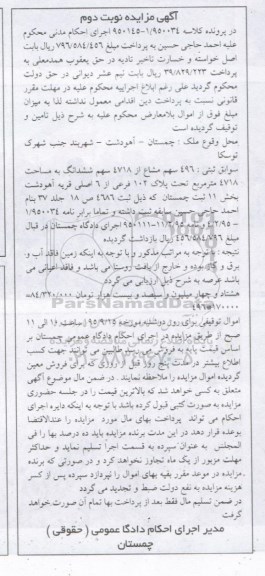 آگهی مزایده نوبت دوم
در پرونده کلاسه ۹۵۰۱۴۵-۱/۹۵۰۰۳۴ اجرای احکام مدنی محکوم
علیه احمد حاجی حسین به پرداخت مبلغ ۷۹۶/۵۸۴/۴۵۶ ریال بابت
اصل خواسته و خسارت تاخیر تادیه در حق یعقوب همدمعلی به
پرداخت ۳۹/۸۲۹/۲۲۳ ریال بابت نیم عشر دیوانی در حق دولت
محکوم گردید علی رغم ابلاغ اجراییه محکوم علیه در مهلت مقرر
قانونی نسبت به پرداخت دین اقدامی معمول نداشته لذا به میزان
مبلغ فوق از اموال بلامعارض محکوم علیه به شرح ذیل تامین و
توقیف گردیده است
محل وقوع ملک : چمستان – آهودشت – شهربند جنب شهرک
توسکا
سوابق ثبتی : ۴۹۶ سهم مشاع از ۴۷۱۸ سهم ششدانگ به مساحت
۴۷۱۸ مترمربع تحت پلاک ۱۰۲ فرعی از ۶ اصلی قریه آهودشت
بخش ۱۱ ثبت چمستان که ذیل ثبت ۴۶۸۶ ص ۱۸ جلد ۳۷ بنام
احمد حاجی سابقه ثبت داشته و تماما برابر نامه ۱/۹۵۰۰۳۴
اجرای احکام دادگاه چمستان در قبال
مبلغ ۴۵۶/۵۸۴/۷۹۶ ریال بازداشت گردیده
نتیجه : با توجه به مراتب مذکور و با توجه به اینکه زمین فاقد آب و
برق و گاز بوده و خارج از بافت روستا می باشد و فاقد اعیانی می
باشد عرصه به شرح ذیل ارزیابی می گردد
هشتاد و چهار میلیون و سیصد و بیست هزار تومان ۸۴/۳۲۰/۰۰۰=
اموال توقیفی برای روز دوشنبه مورخه ۹۵/۹/۲۵ ساعت ۱۶ الی ۱۱
صبح از طریق مزایده در اجرای احکام دادگاه عمومی چمستان بر
اساس قیمت پایه به فروش می رسد طالبین می توانند جهت کسب
اطلاع بیشتر در مدت پنج روز قبل از روزی که برای فروش معین
گردیده اموال مزایده را ملاحظه نمایند . در ضمن مال موضوع آگهی
متعلق به کسی خواهد شد که بالاترین قیمت را در جلسه حضوری
مزایده به صورت کتبی قبول کرده باشد با توجه به اینکه دایره اجرای
احکام می تواند پرداخت بهای مال مورد مزایده را عندالاقتضا
بوعده قرار دهد در این مدت برنده مزایده باید ده درصد بها را فی
المجلس به عنوان سپرده به قسمت اجرا تسلیم نماید و حداکثر
مهلت مزبور از یک ماه تجاوز نخواهد کرد و در صورتی که برنده
مزایده در موعد مقرر بقیه بهای اموال را نپردازد سپرده پس از کسر
هزینه مزایده به نفع دولت ضبط و تجدید می گردد
در ضمن تسلیم مال فقط بعد از پرداخت بها تمام آن صورت خواهد
گرفت
مدیر اجرای احکام دادگا عمومی ( حقوقی )
چمستان